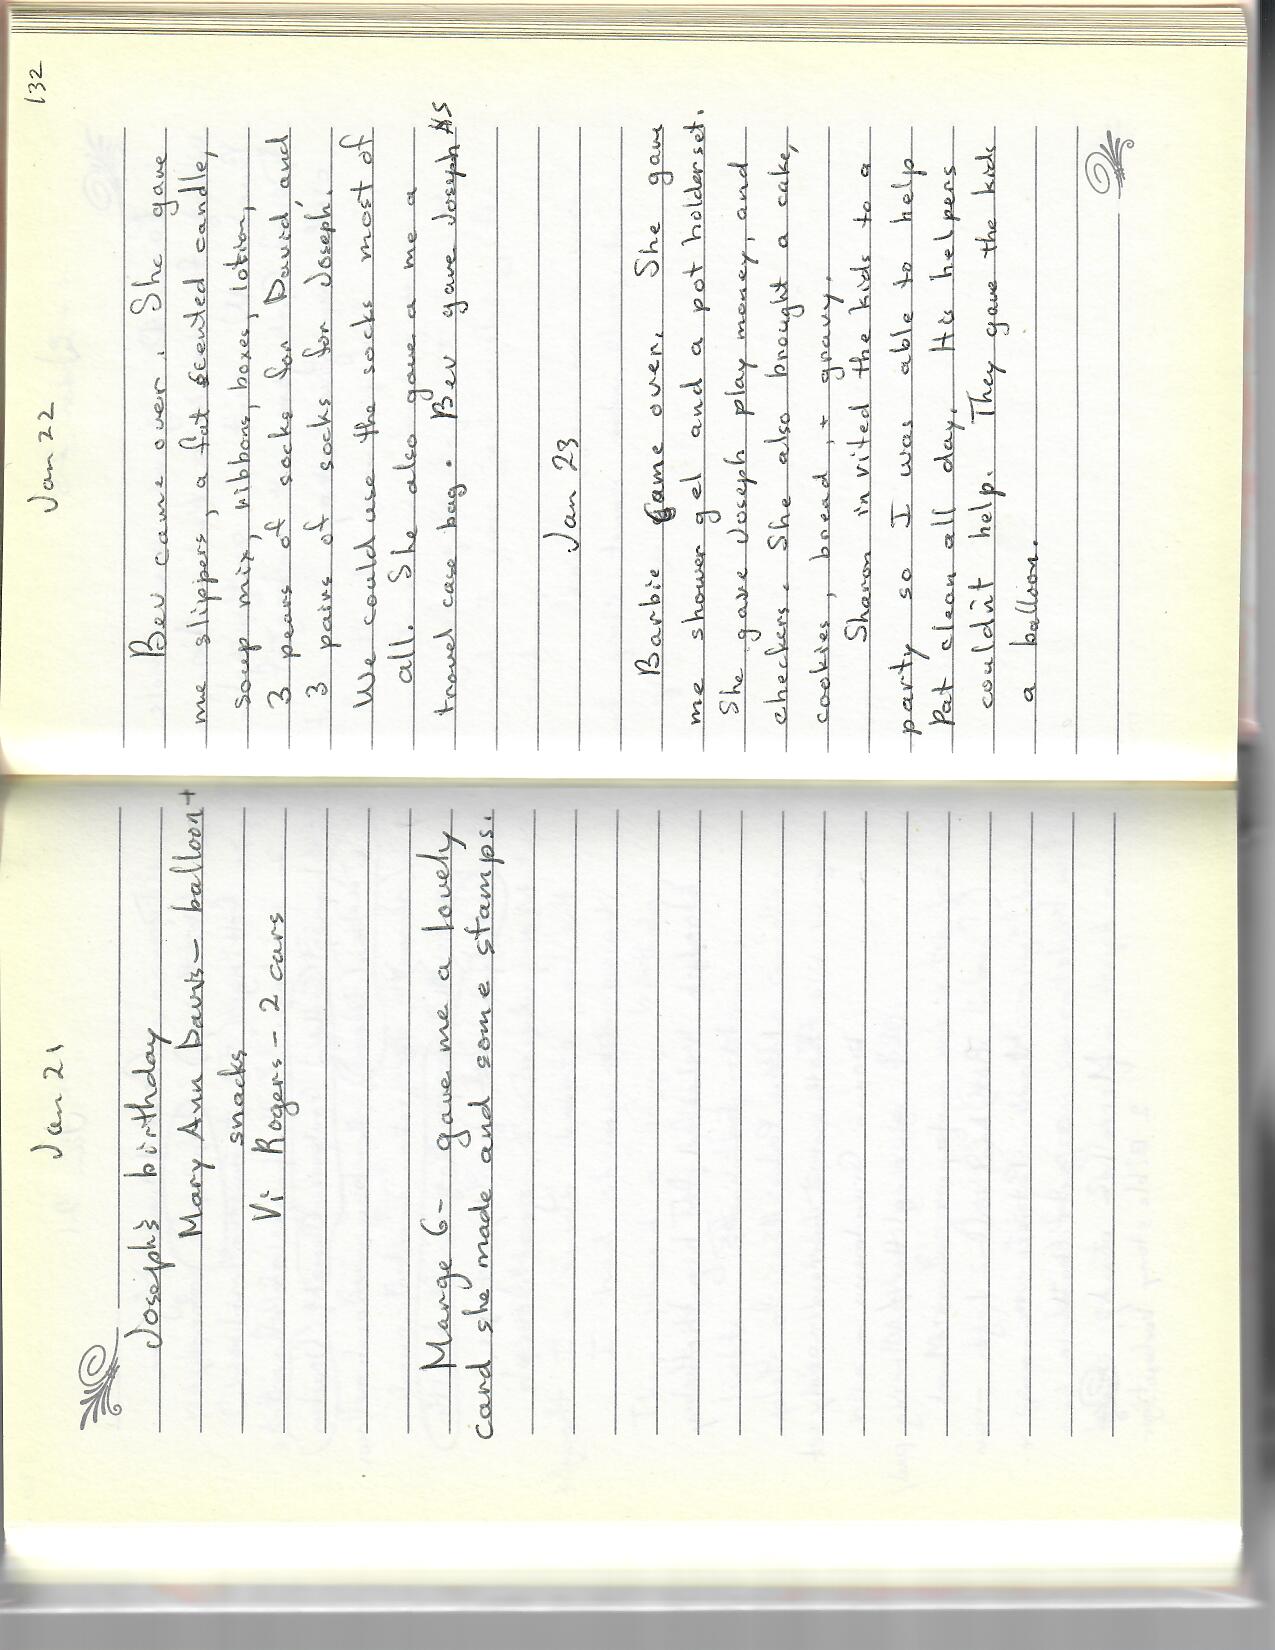 Jan 21
Joseph's birthday
Mary Ann Davis - balloon +
snacks
Vi Rogers - 2 cars
Marge G - gave me a lovely
card she made and some stamps.
132
Jan 22
Bev came over. She gave
me slippers, a fat scented candle,
soup mix, ribbons, boxes, lotion,
3 pears of socks for David, and
3 pairs of socks for Joseph.
We could use the socks most of
all. She also gave a me a
travel case bag. Bev gave Joseph #5
Jan 23
Barbie came over. She gave
me shower gel and a pot holder set.
She gave Joseph play money, and
checkers. She also brought a cake,
cookies, bread, + gravy.
Sharon invited the kids to a
party so I was able to help
Pat clean all day. His helpers
couldn't help. They gave the kids
a balloon.